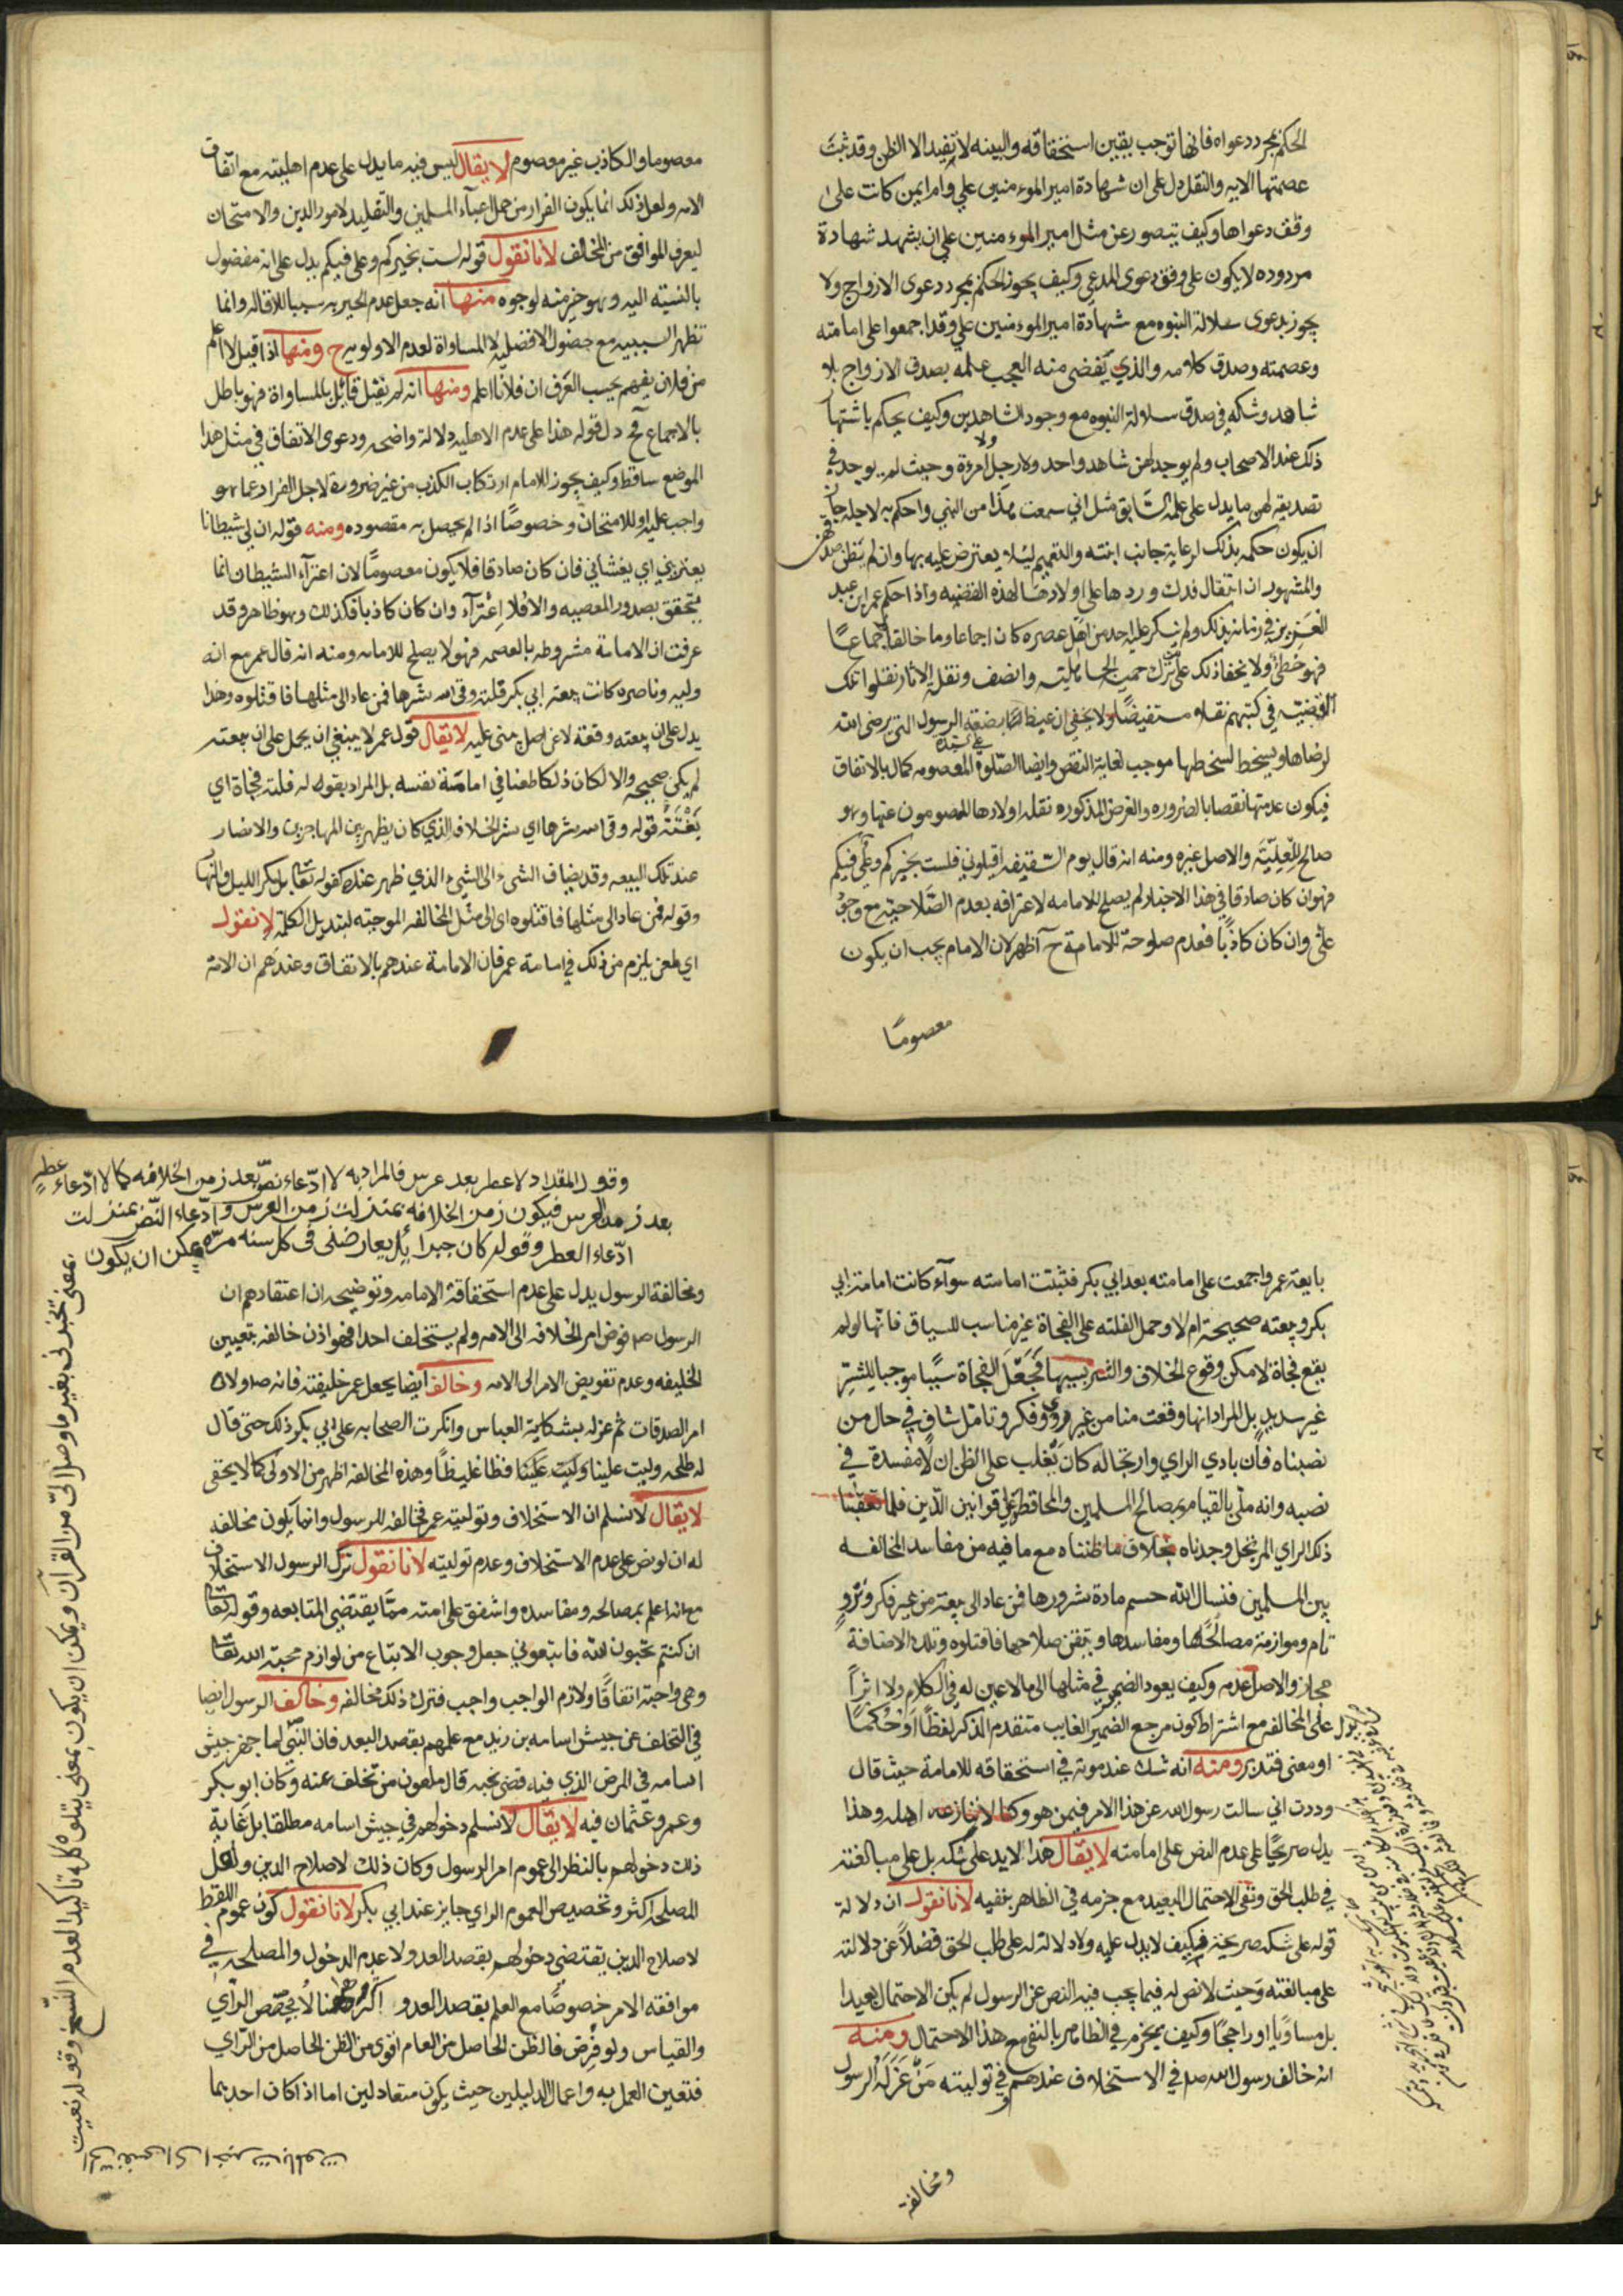 الحكم بمجرد دعواه فانها توجب يقين استحقاقه والبينه لا تفيد الا الظن وقد ثبت
عصمتها الايه والنقل دل على ان شهادة امير المومنين علي وام ايمن كانت على
وقف دعواها وكيف يتصور عن مثل امير المومنين علي ان يشهد شهادة
مردوده لا يكون على وفق دعوى المدعي وكيف يجوز الحكم بمجرد دعوى الازواج ولا
يجوز بدعوى سلالة النبوه مع شهادة امير المومنين علي وقد اجمعوا على امامته
وعصمته وصدق كلامه والذي يقضى منه العجب علمه بصدق الازواج بلا
شاهد وشكه في صدق سلالة النبوه مع وجود الشاهدين وكيف يحكم باشتهار
ذلك عند الاصحاب ولم يوجد لهن شاهد واحد ولا رجل ولا امرءة وحيث لم يوجد في
تصديقه لهن ما يدل على علمه السابق مثل اني سمعت هذا من النبي واحكم به لاجله جاز
ان يكون حكمه بذلك لرعاية جانب ابنته والتعميم لئلا يعترض عليه بها وان لم يظن صدقهن
والمشهور ان انتقال فدك وردها على اولادها لهذه القضيه واذا حكم عمر ابن عبد
العزيز في زمانه بذلك ولم ينكر عليه احد من اهل عصره كان اجماعا وما خالفه اجماعا
فهو خطئ ولا يخفا ذلك على من ترك حمية الجاهلية وانصف ونقلة الاثار نقلوا تلك
القضية في كتبهم نقلا مستفيضا ولا يخفى ان غيظ بضعة الرسول التي يرضى الله
لرضاها ويسخط لسخطها موجب لغاية النقص وايضا الصلوة على سيدة المعصومه كمال بالاتفاق
فيكون عدمها نقصا بالضروره والغرض المذكوره نقله اولادها المعصومون عنها وهو
صالح للعليّة والاصل غيره ومنه انه قال يوم السقيفه اقيلوني فلست بخيركم وعلي فيكم
فهو ان كان صادقا في هذا الاخبار لم يصلح للامامه لاعترافه بعدم الصلاحية مع وجود
علي وان كان كاذبا فعدم صلوحه للامامة ح اظهر لان الامام يجب ان يكون
معصوما
معصوما والكاذب غير معصوم لا يقال ليس فيه ما يدل على عدم اهليته مع اتفاق
الامه ولعل ذلك انما يكون الفرار من حمل اعباء المسلمين والتقليد لامور الدين والامتحان
ليعرف الموافق من المخالف لانا نقول قوله لست بخيركم وعلي فيكم يدل على انه مفضول
بالنسبة اليه وهو خير منه لوجوه منها انه جعل عدم الخيريه سببا للاقاله وانما
تظهر السببيه مع حصول الافضليه لا المساواة لعدم الاولوية ح ومنها اذا قيل لا اعلم
من فلان يفهم بحسب العرف ان فلانا اعلم ومنها انه لم يقل قائل بالمساواة فهو باطل
بالاجماع فح دل قوله هذا على عدم الاهليه دلالة واضحه ودعوى الاتفاق في مثل هذا
الموضع ساقط وكيف يجوز للامام ارتكاب الكذب من غير ضرورة لاجل الفرار عما هو
واجب عليه او للامتحان وخصوصا اذا لم يحصل به مقصوده ومنه قوله ان لي شيطانا
يعتريني اي يغشاني فان كان صادقا فلا يكون معصوما لان اعتراء الشيطان انما
يتحقق بصدور المعصيه والا فلا اعتراء وان كان كاذبا فكذلك وهو ظاهر وقد
عرفت ان الامامة مشروطه بالعصمه فهو لا يصلح للامامه ومنه انه قال عمر مع انه
وليه وناصره كانت بيعة ابي بكر فلتة وقى الله شرها فمن عاد الى مثلها فاقتلوه وهذا
يدل على ان بيعته وقعت لا عن اصل مبني عليه لا يقال قول عمر لا ينبغي ان يحمل على ان بيعته
لم يكن صحيحه والا لكان ذلك طعنا في امامة نفسه بل المراد بقوله فلتة فجاة اي
بغتة قوله وقى الله شرها اي شر الخلاف الذي كان يظهر بين المهاجرين والانصار
عند تلك البيعه وقد يضاف الشيء الى الشيء الذي ظهر عنده كقوله تعا بل مكر الليل والنهار
وقوله فمن عاد الى مثلها فاقتلوه اي الى مثل المخالفه الموجبه لتبديل الكلمة لانا نقول
اي طعن يلزم من ذلك في امامة عمر فان الامامة عندهم بالاتفاق وعندهم ان الامة
بايعة عمر واجمعت على امامته بعد ابي بكر فثبتت امامته سواء كانت امامة ابي
بكر وبيعته صحيحة ام لا وحمل الفلته على الفجاة غير مناسب للسياق فانها لو لم
يقع فجاة لامكن وقوع الخلاف والشر بسببها فجعل الفجاة سببا موجبا للشر
غير سديد بل المراد انها وقعت منا من غير تروي وفكر وتامل شاف في حال من
نصبناه فان بادي الراي وارتجاله كان يغلب على الظن ان لا مفسدة في
نصبه وانه ملي بالقيام بمصالح المسلمين والمحافظة على قوانين الدين فلما تعقبنا
ذلك الراي المرتجل وجدناه بخلاف ما ظنناه مع ما فيه من مفاسد المخالفه
بين المسلمين فنسال الله حسم مادة شرورها فمن عاد الى بيعة من غير فكر وترو
تام وموازنة مصالحها ومفاسدها وتيقن صلاحها فاقتلوه وتلك الاضافة
مجاز والاصل عدمه وكيف يعود الضمير في مثلها الى ما لا عين له في الكلام ولا اثرا
يدل على المخالفه مع اشتراط كون مرجع الضمير الغايب متقدم الذكر لفظا او حكما
او معنى فتدبر ومنه انه شك عند موته في استحقاقه للامامة حيث قال
وددت اني سالت رسول الله عن هذا الامر فيمن هو وكنا لا ننازعه اهله وهذا
يدل صريحا على عدم النص على امامته لا يقال هذا لا يدل على شكه بل على مبالغته
في طلب الحق ونفي الاحتمال البعيد مع جزمه في الظاهر بنفيه لانا نقول ان دلالة
قوله على شكه صريحة فكيف لا يدل عليه ولا دلالة له على طلب الحق فضلا عن دلالته
على مبالغته وحيث لا نص له فيما يجب فيه النص عن الرسول لم يكن الاحتمال بعيدا
بل مساويا او راجحا وكيف يجزم في الظاهر بالنفي مع هذا الاحتمال ومنه
انه خالف رسول الله صم في الاستخلاف عندهم وفي توليته من عزله الرسول
ومخالفة
وقول المقداد لا عطر بعد عرس فالمراد به لا ادّعاء نصّ بعد زمن الخلافه كما لا ادّعاء عطر
بعد زمن العرس فيكون زمن الخلافه بمنزلت زمن العرس وادّعاء النصّ بمنزلت
ادّعاء العطر وقوله كان جبرائيل يعارضني في كل سنه مرّه يمكن ان يكون
بمعنى يخبرني بغير ما وصل اليّ من القرآن ويمكن ان يكون بمعنى يتلوه كله تاكيدا لعدم النسخ وقوله نعيت
الي نفسي اي اخبرت بالموت
ومخالفة الرسول يدل على عدم استحقاقه الامامه وتوضيحه ان اعتقادهم ان
الرسول صم فوض امر الخلافه الى الامه ولم يستخلف احدا فهو اذن خالفه بتعيين
الخليفه وعدم تفويض الامر الى الامه وخالف ايضا بجعل عمر خليفته فانه صم ولاه
امر الصدقات ثم عزله بشكاية العباس وانكرت الصحابه على ابي بكر ذلك حتى قال
له طلحه وليت علينا وليت علينا فظا غليظا وهذه المخالفه اظهر من الاولى كما لا يخفى
لا يقال لا نسلم ان الاستخلاف وتوليته عمر مخالفه للرسول وانما يكون مخالفه
له ان لو نص على عدم الاستخلاف وعدم توليته لانا نقول ترك الرسول الاستخلاف
مع انه اعلم بمصالحه ومفاسده واشفق على امته مما يقتضي المتابعه وقوله تعا
ان كنتم تحبون الله فاتبعوني جعل وجوب الاتباع من لوازم محبة الله تعا
وهي واجبة اتفاقا ولازم الواجب واجب فترك ذلك مخالفه وخالف الرسول ايضا
في التخلف عن جيش اسامه بن زيد مع علمهم بقصد البعد فان النبي لما جهز جيش
اسامه في المرض الذي فيه قضى نحبه قال ملعون من تخلف عنه وكان ابو بكر
وعمر وعثمان فيه لا يقال لا نسلم دخولهم في جيش اسامه مطلقا بل غاية
ذلك دخولهم بالنظر الى عموم امر الرسول وكان ذلك لاصلاح الدين ولعل
المصلحه اكثر وتخصيص العموم الراي جايز عند ابي بكر لانا نقول كون عموم اللفظ
لاصلاح الدين يقتضي دخولهم بقصد العدو لا عدم الدخول والمصلحه في
موافقه الامر خصوصا مع العلم بقصد العدو اكثر وههنا لا يخصص الراي
والقياس ولو فرض فالظن الحاصل من العام اقوى من الظن الحاصل من الراي
فتعين العمل به واعمال الدليلين حيث يكون متعادلين اما اذا كان احدهما